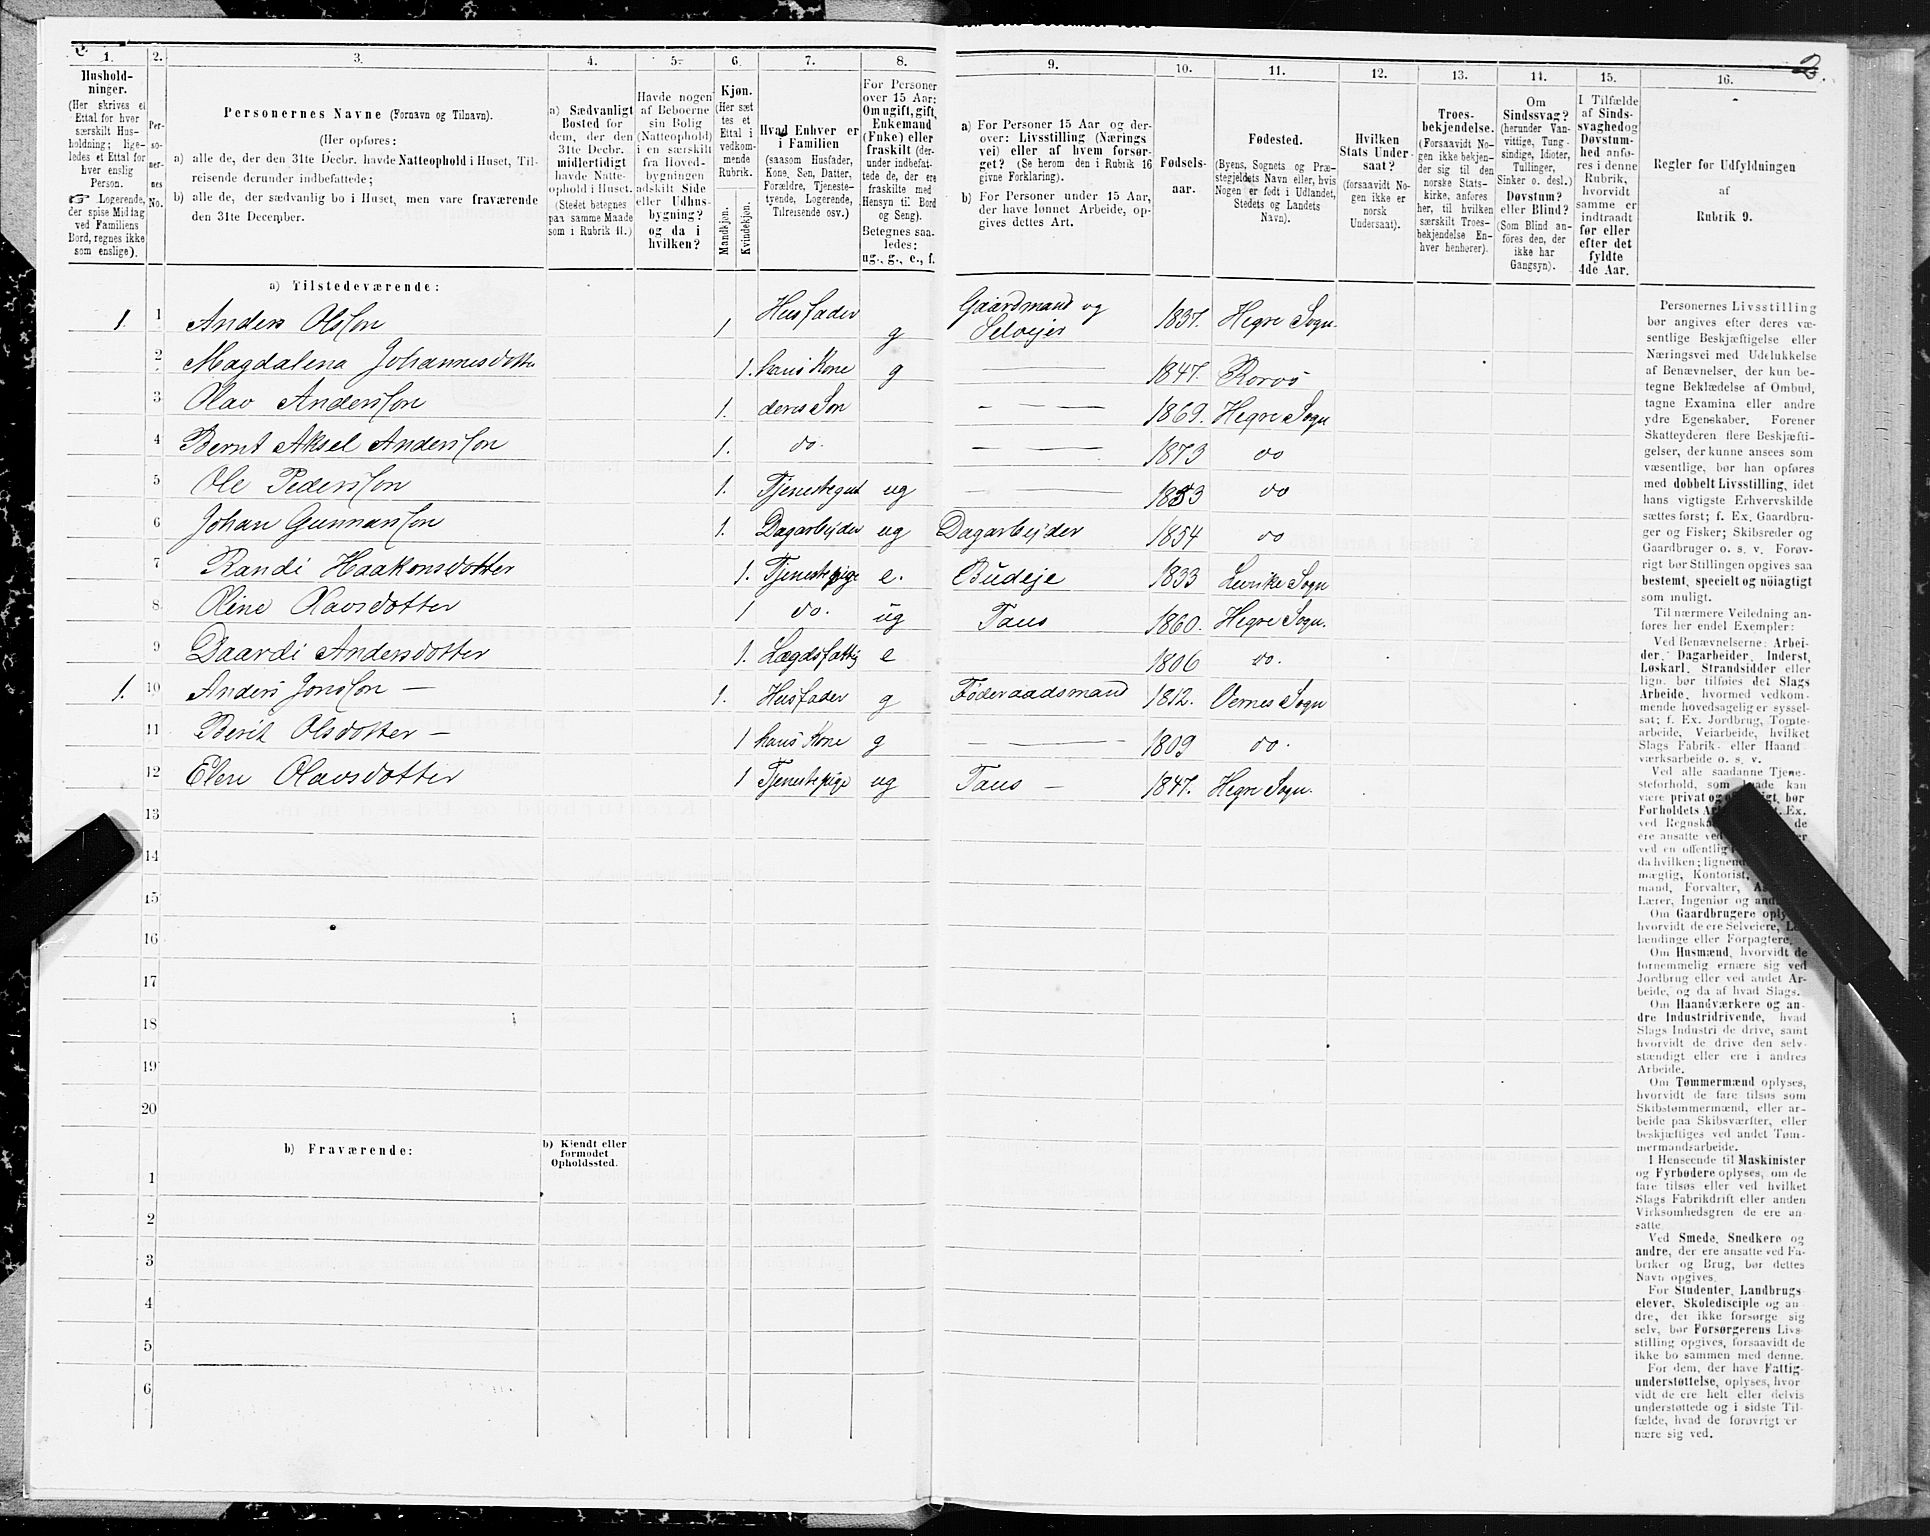 1.
2.
3.
4.
5.
6.
7.
8.
9.
10.
11.
12.
13.
14.
15.
16.
2.
Hushold-
ninger.
(Her skrives et
Ettal for hver
særskilt Hus-
holdning; lige-
ledes et Ettal for
hver enslig
Person.
☞ Logerende,
der spise Middag
ved Familiens
Bord, regnes ikke
som enslige).
Per-
so-
ner-
nes
No.
Personernes Navne (Fornavn og Tilnavn).
(Her opføres:
a) alle de, der den 31te Decbr. havde Natteophold i Huset, Til-
reisende derunder indbefattede;
b) alle de, der sædvanlig bo i Huset, men vare fraværende
den 31te December.
a) Sædvanligt
Bosted for
dem, der den
31te Decbr.
midlertidigt
havde Natte-
ophold i Huset.
(Stedet betegnes
paa samme Maade
som i Rubrik 11.)
Havde nogen
af Beboerne
sin Bolig
(Natteophold)
i en særskilt
fra Hoved-
bygningen
adskilt Side
eller Udhus-
bygning?
og da i
hvilken?
Kjøn.
(Her sæt
tes et
Ettal i
vedkom-
mende
Rubrik.
Mandkjøn.
Kvindekjøn.
Hvad Enhver er
i Familien
(saasom Husfader,
Kone, Søn, Datter,
Forældre, Tjeneste-
tyende, Logerende,
Tilreisende osv.)
For Personer
over 15 Aar:
Om ugift, gift,
Enkemand
(Enke) eller
fraskilt (der-
under indbefat-
tede de, der ere
fraskilte med
Hensyn til Bord
og Seng).
Betegnes saa-
ledes:
ug., g., e., f.
a) For Personer 15 Aar og der-
over: Livsstilling (Nærings
vei) eller af hvem forsør-
get? (Se herom den i Rubrik 16
givne Forklaring).
b) For Personer under 15 Aar,
der have lønnet Arbeide, op-
gives dettes Art.
Fødsels-
aar.
Fødested.
(Byens, Sognets og Præ-
stegjeldets Navn eller, hvis
Nogen er født i Udlandet,
Stedets og Landets
Navn).
Hvilken
Stats Under-
saat?
(forsaavidt No-
gen ikke er
norsk
Undersaat).
Troes-
bekjendelse.
(Forsaavidt No-
gen ikke bekjen-
der sig til den
norske Stats-
kirke, anføres
her, til hvilken
særskilt Troes-
bekjendelse En-
hver henhører).
Om
Sindssvag?
(herunder Van-
vittige, Tung-
sindige, Idioter,
Tullinger,
Sinker o. desl.)
Døvstum?
eller Blind?
(Som Blind an-
føres den, der
ikke har
Gangsyn).
I Tilfælde
af Sinds-
svaghed og
Døvstum-
hed anfø-
res i denne
Rubrik,
hvorvidt
samme er
indtraadt
før eller
efter det
fyldte
4de Aar.
Regler før Udfyldningen
af
Rubrik 9.
a) Tilstedeværende:
1. 1 Anders Olsson 1 Husfader g Gaardmand og Selveier 1837. Hegre Sogn.
2 Magdalena Johannesdotter 1. hans Kone g 1847. Rorvò
3 Olav Andersson 1. deres Søn 1869. Hegre Sogn
4 Bernt Aksel Andersson 1. do. 1873 do
5 Ole Pedersson 1. Tjenestegut ug 1853 do
6 Johan Gunnarsson 1. Dagarbejder ug Dagarbejder 1854 do
7 Randi Haakonsdotter 1. Tjenestepige e. Budeje 1833 Levrike Sogn
8 Oline Olavsdotter 1 do. ug Taus 1860. Hegre Sogn.
9 Daardi Andersdotter 1. Lægdsfattig e 1806 do.
1. 10 Anders Jonsson — 1. Husfader g Føderaadsmand 1812. Vernes Sogn
11 Berit Olsdotter — 1 hans Kone g 1809 do.
12 Elen Olavsdotter 1 Tjenestepige ug Taus — 1847. Hegre Sogn.
13
14
15
16
17
18
19
20
b) Fraværende:
b) Kjendt eller
formodet
Opholdssted.
1
2
3
4
5
6
Personernes Livsstilling
bør angives efter deres væ-
sentlige Beskjæftigelse eller
Næringsvei med Udelukkelse
af Benævnelser, der kun be-
tegne Beklædelse af Ombud,
tagne Examina eller andre
ydre Egenskaber. Forener
Skatteyderen flere Beskjæfti-
gelser, der kunne ansees som
væsentlige, bør han opføres
med dobbelt Livsstilling, idet
hans vigtigste Erhvervskilde
sættes først; f. Ex. Gaardbru-
ger og Fisker; Skibsreder og
Gaardbruger o. s. v. Forøv-
rigt bør Stillingen opgives saa
bestemt, specielt og nöiagtigt
som muligt.
Til nærmere Veiledning an-
føres her endel Exempler:
Ved Benævnelserne: Arbei-
der, Dagarbeider, Inderst,
Løskarl, Strandsidder eller
lign. bør tilføies det Slags
Arbeide, hvormed vedkom-
mende hovedsagelig er syssel-
sat; f. Ex. Jordbrug, Tomte-
arbeide, Veiarbeide, hvilket
Slags Fabrik- eller Haand-
værksarbeide o. s. v.
Ved alle saadanne Tjene-
steforhold, som kan
være privat og bør
Forholdets Ex.
ved de
ere ansatte ved
ved en offentlig
da hvilken;
mægtig, Kontorist,
mand, Forvalter,
Lærer, Ingeniør og
Om Gaardbrugere
hvorvidt de ere Selveiere,
lændinge eller Forpagtere.
Om Husmænd, hvorvidt de
fornemmelig ernære sig ved
Jordbrug eller ved andet Ar-
beide, og da af hvad Slags.
Om Haandværkere og an-
dre Industridrivende, hvad
Slags Industri de drive, samt
hvorvidt de drive den selv-
stændigt eller ere i andres
Arbeide.
Om Tømmermænd oplyses,
hvorvidt de fare tilsøs som
Skibstømmermænd, eller ar-
beide paa Skibsværfter, eller
beskjæftiges ved andet Tøm-
mermandsarbeide.
I Henseende til Maskinister
og Fyrbødere oplyses, om de
fare tilsøs eller ved hvilket
Slags Fabrikdrift eller anden
Virksomhedsgren de ere an-
satte.
Ved Smede, Snedkere og
andre, der ere ansatte ved Fa-
briker og Brug, bør dettes
Navn opgives.
For Studenter, Landbrugs-
elever, Skoledisciple og an-
dre, der ikke forsørge sig
selv, bør Forsørgerens Livs-
stilling opgives, forsaavidt de
ikke bo sammen med denne.
For dem, der have Fattig-
understøttelse, oplyses, hvor-
vidt de ere helt eller delvis
understøttede og i sidste Til-
fælde, hvad de forøvrigt er-
nære sig ved.